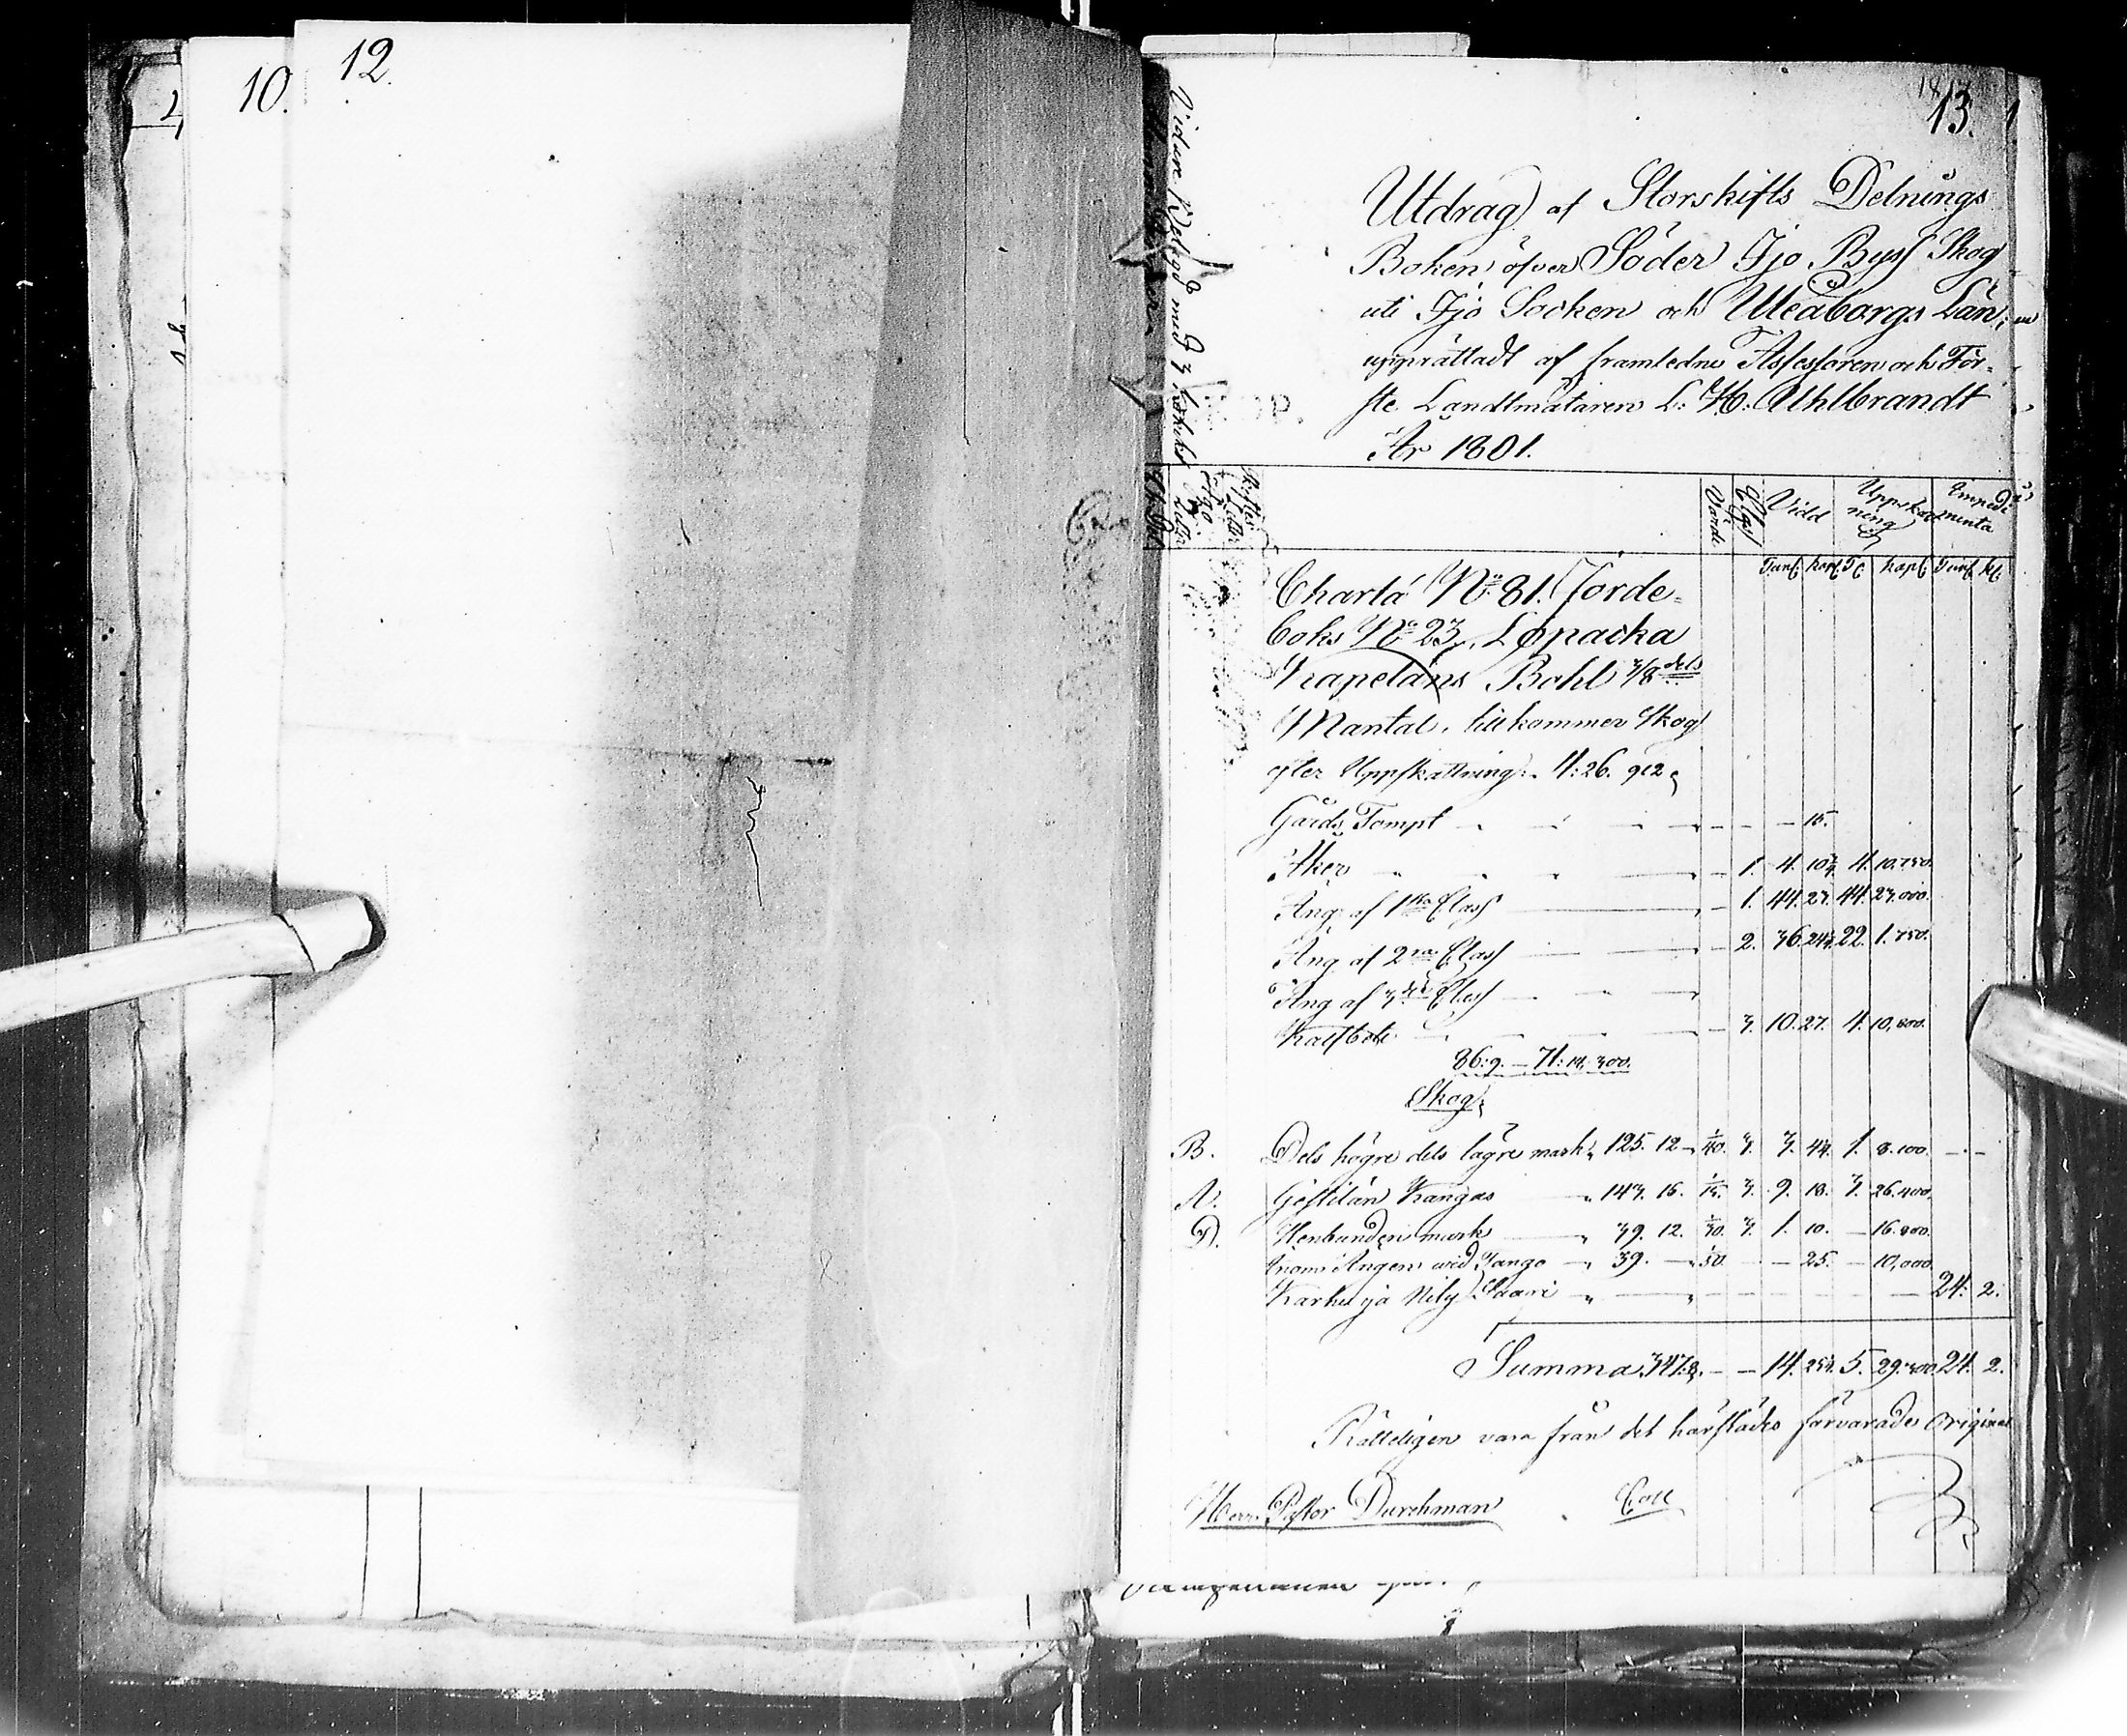 10.
12.
13.
Utdrag af Storskifts Delnings
Boken öfver Söder Ijo Byss Skog
uti Ijo Socken och Uleåborgs Län;
upprättadt af framledne Assessoren och För-
ste Landtmätaren L: H: Ahlbrandt
År 1801.
Värde Class Vidd Uppskattning Impedimenta
Tunl. Kapl. Tl. Kapl. Tunl. Kl.
Charta No 81. Jorde-
boks No 23. Lopacka
Kapeláns Bohl 3/8 dels
Mantal, tillkommer Skog
efter Uppskattning. 4:26. 912
Gårds Tompt 15.
Åker 1. 4. 10¾ 4. 10.750.
Äng af 1sta Class 1. 44. 27. 44. 27.000.
Äng af 2ra Class 2. 36. 24¾. 22. 1.750.
Äng af 3dje Class
Kalfbete 3. 10. 27. 4. 10.800.
86: 9. — 71: 14. 300.
Skog;
B. Dels högre dels lägre mark 125. 12 1/40. 3. 3. 4¼. 1. 8.100.
A. Gästilän Kangas 143. 16. 1/15. 3. 9. 18. 3. 26.400.
D. Stenbunden mark 39. 12. 1/30. 3. 1. 10. 16.800.
Inom Ängen wid Tango 39. 1/50 25. 10,000
Karhu ja Nily Saari 24: 2.
Summa 347:8. 14. 25¼. 5. 29.300. 24. 2.
Rätteligen vara från det härstädes förvarade Original
Herr Pastor Durchman Coll